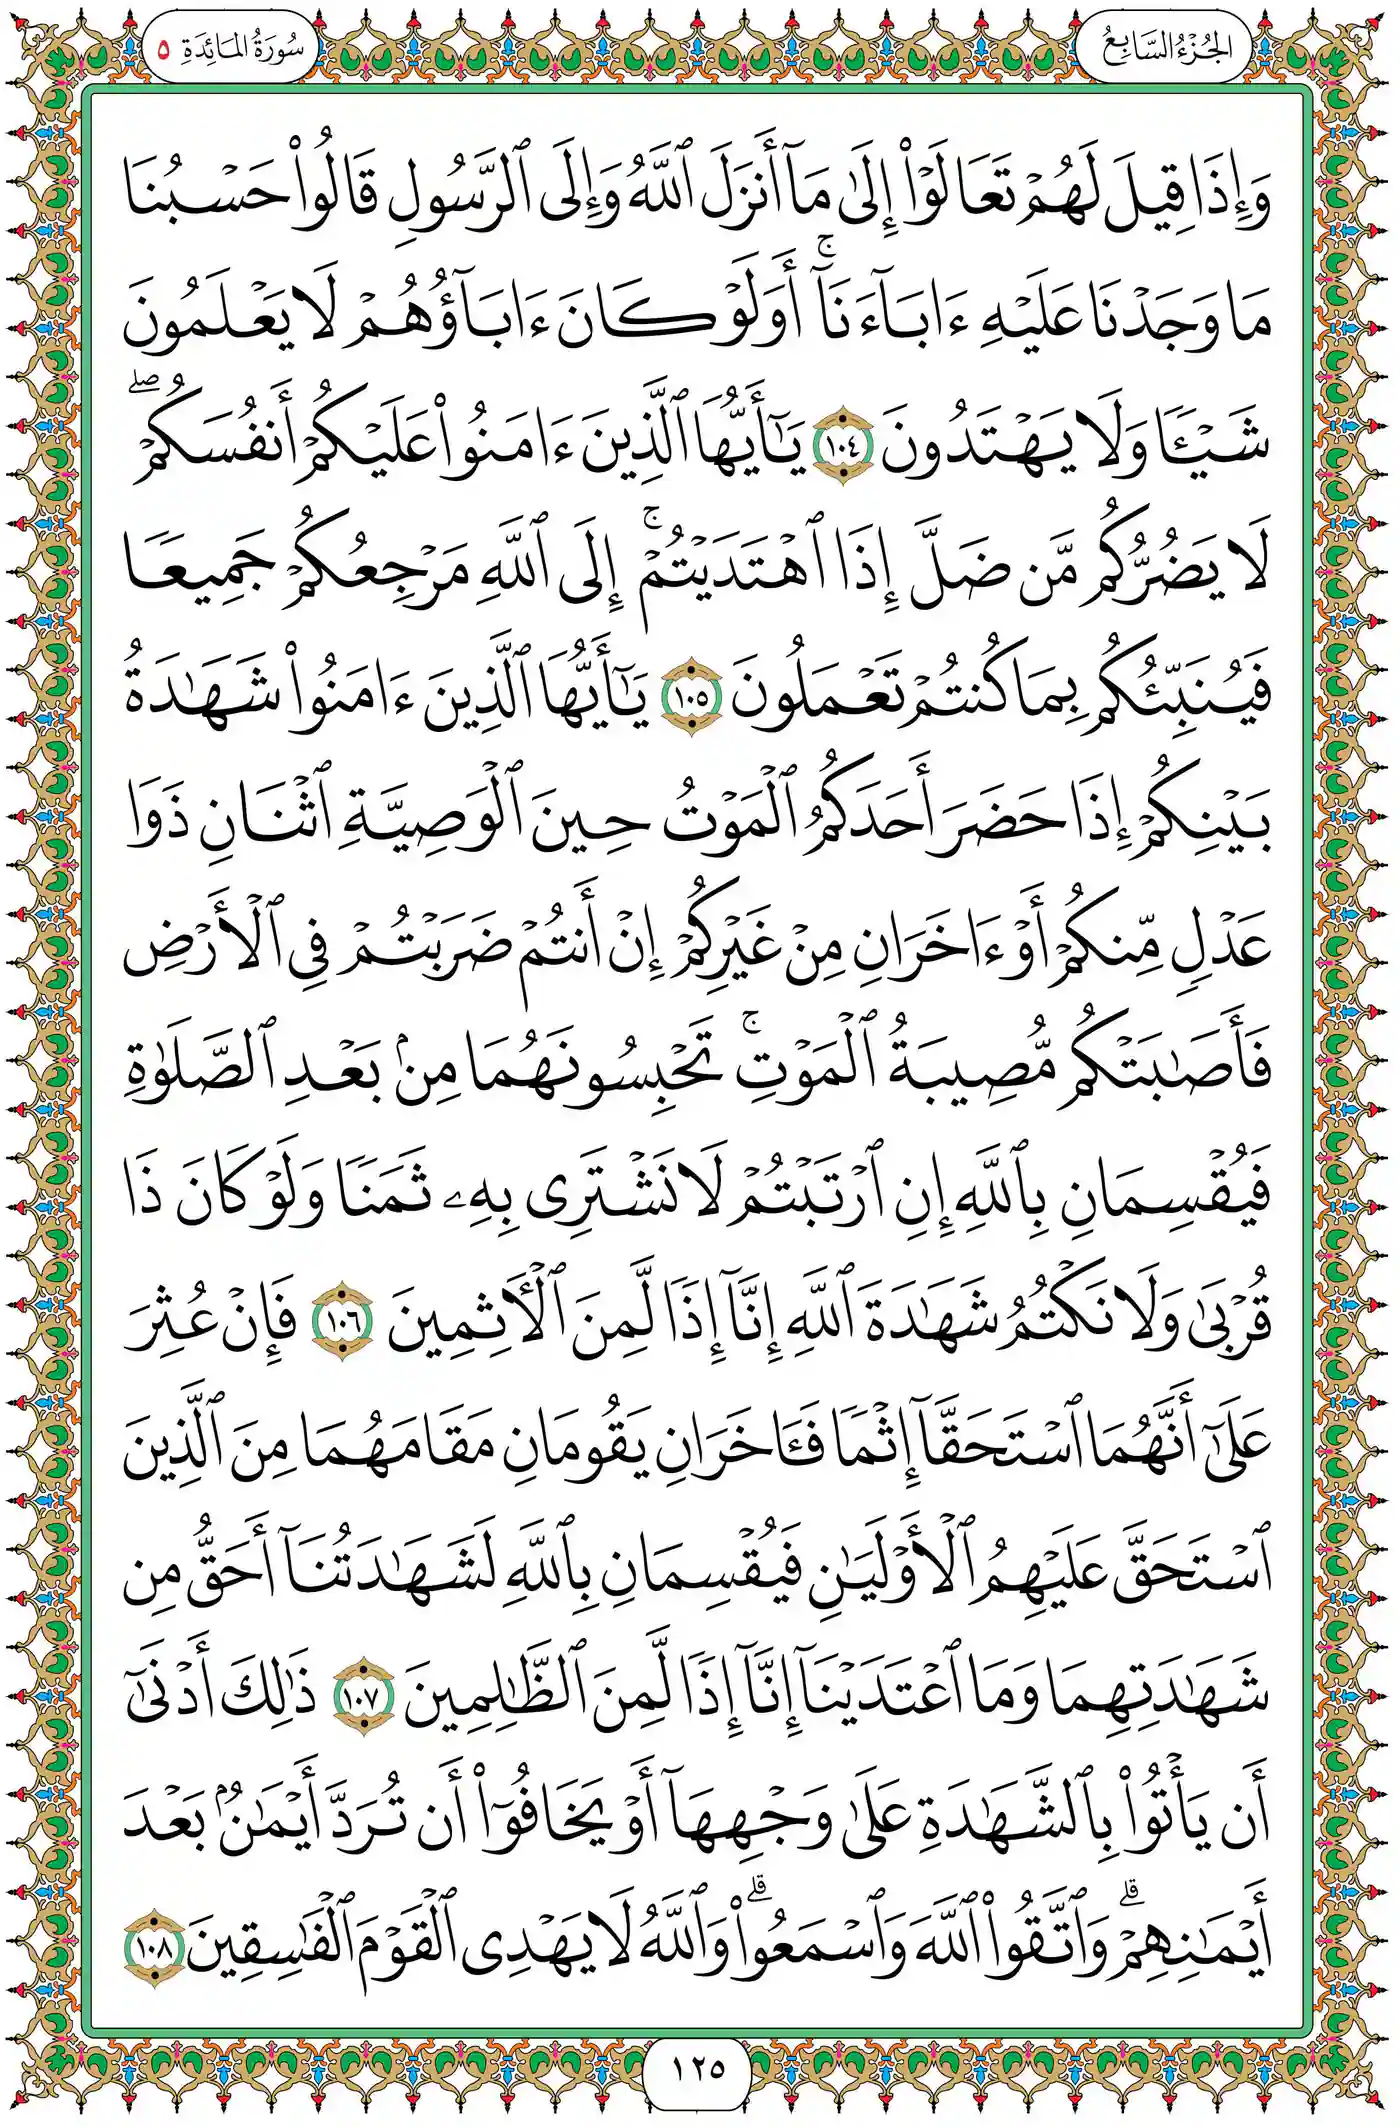 الجُزْءُ السَّابِعُ
سُورَةُ المَائِدَةِ ٥
وَإِذَا قِيلَ لَهُمۡ تَعَالَوۡاْ إِلَىٰ مَآ أَنزَلَ ٱللَّهُ وَإِلَى ٱلرَّسُولِ قَالُواْ حَسۡبُنَا
مَا وَجَدۡنَا عَلَيۡهِ ءَابَآءَنَآۚ أَوَلَوۡ كَانَ ءَابَآؤُهُمۡ لَا يَعۡلَمُونَ
شَيۡـٔٗا وَلَا يَهۡتَدُونَ ١٠٤ يَـٰٓأَيُّهَا ٱلَّذِينَ ءَامَنُواْ عَلَيۡكُمۡ أَنفُسَكُمۡۖ
لَا يَضُرُّكُم مَّن ضَلَّ إِذَا ٱهۡتَدَيۡتُمۡۚ إِلَى ٱللَّهِ مَرۡجِعُكُمۡ جَمِيعٗا
فَيُنَبِّئُكُم بِمَا كُنتُمۡ تَعۡمَلُونَ ١٠٥ يَـٰٓأَيُّهَا ٱلَّذِينَ ءَامَنُواْ شَهَٰدَةُ
بَيۡنِكُمۡ إِذَا حَضَرَ أَحَدَكُمُ ٱلۡمَوۡتُ حِينَ ٱلۡوَصِيَّةِ ٱثۡنَانِ ذَوَا
عَدۡلٖ مِّنكُمۡ أَوۡ ءَاخَرَانِ مِنۡ غَيۡرِكُمۡ إِنۡ أَنتُمۡ ضَرَبۡتُمۡ فِي ٱلۡأَرۡضِ
فَأَصَٰبَتۡكُم مُّصِيبَةُ ٱلۡمَوۡتِۚ تَحۡبِسُونَهُمَا مِنۢ بَعۡدِ ٱلصَّلَوٰةِ
فَيُقۡسِمَانِ بِٱللَّهِ إِنِ ٱرۡتَبۡتُمۡ لَا نَشۡتَرِي بِهِۦ ثَمَنٗا وَلَوۡ كَانَ ذَا
قُرۡبَىٰ وَلَا نَكۡتُمُ شَهَٰدَةَ ٱللَّهِ إِنَّآ إِذٗا لَّمِنَ ٱلۡأٓثِمِينَ ١٠٦ فَإِنۡ عُثِرَ
عَلَىٰٓ أَنَّهُمَا ٱسۡتَحَقَّآ إِثۡمٗا فَـَٔاخَرَانِ يَقُومَانِ مَقَامَهُمَا مِنَ ٱلَّذِينَ
ٱسۡتَحَقَّ عَلَيۡهِمُ ٱلۡأَوۡلَيَٰنِ فَيُقۡسِمَانِ بِٱللَّهِ لَشَهَٰدَتُنَآ أَحَقُّ مِن
شَهَٰدَتِهِمَا وَمَا ٱعۡتَدَيۡنَآ إِنَّآ إِذٗا لَّمِنَ ٱلظَّٰلِمِينَ ١٠٧ ذَٰلِكَ أَدۡنَىٰٓ
أَن يَأۡتُواْ بِٱلشَّهَٰدَةِ عَلَىٰ وَجۡهِهَآ أَوۡ يَخَافُوٓاْ أَن تُرَدَّ أَيۡمَٰنُۢ بَعۡدَ
أَيۡمَٰنِهِمۡۗ وَٱتَّقُواْ ٱللَّهَ وَٱسۡمَعُواْۗ وَٱللَّهُ لَا يَهۡدِي ٱلۡقَوۡمَ ٱلۡفَٰسِقِينَ ١٠٨
١٢٥